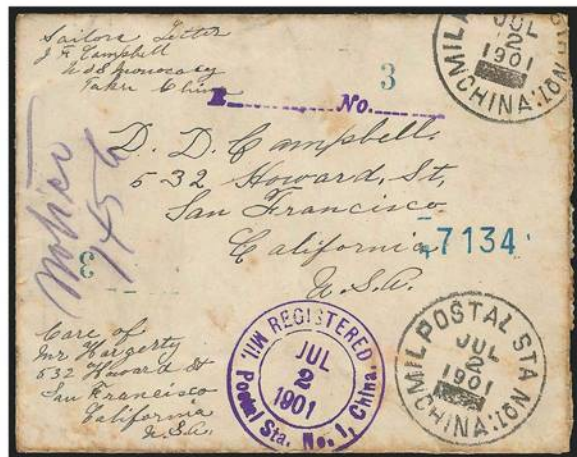 Sailors Letter
J F Campbell
U S S Monocacy
Taku China
3
R No.
MIL. POSTAL STA. NO. 1 CHINA.
JUL
2
1901
D. D. Campbell.
532 Howard, St,
San Francisco
California
U.S.A.
7134
3
Care of
Mr Hargerty
532 Howard St
San Francisco
California
U.S.A.
REGISTERED.
JUL
2
1901
Mil. Postal Sta. No. 1, China.
MIL. POSTAL STA. NO. 1 CHINA.
JUL
2
1901